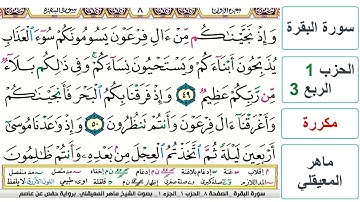 ٨
سورة البقرة
وَإِذْ نَجَّيْنَٰكُم مِّنْ ءَالِ فِرْعَوْنَ يَسُومُونَكُمْ سُوٓءَ ٱلْعَذَابِ
يُذَبِّحُونَ أَبْنَآءَكُمْ وَيَسْتَحْيُونَ نِسَآءَكُمْ وَفِى ذَٰلِكُم بَلَآءٌ
مِّن رَّبِّكُمْ عَظِيمٌ ٤٩ وَإِذْ فَرَقْنَا بِكُمُ ٱلْبَحْرَ فَأَنجَيْنَٰكُمْ
وَأَغْرَقْنَآ ءَالَ فِرْعَوْنَ وَأَنتُمْ تَنظُرُونَ ٥٠ وَإِذْ وَٰعَدْنَا مُوسَىٰٓ
أَرْبَعِينَ لَيْلَةً ثُمَّ ٱتَّخَذْتُمُ ٱلْعِجْلَ مِنۢ بَعْدِهِۦ وَأَنتُمْ ظَٰلِمُونَ
سورة البقرة
الحزب 1
الربع 3
مكررة
ماهر
المعيقلي
سورة البقرة الصفحة ٨ الحزب ١ الجزء ١ بصوت الشيخ ماهر المعيقلي برواية حفص عن عاصم